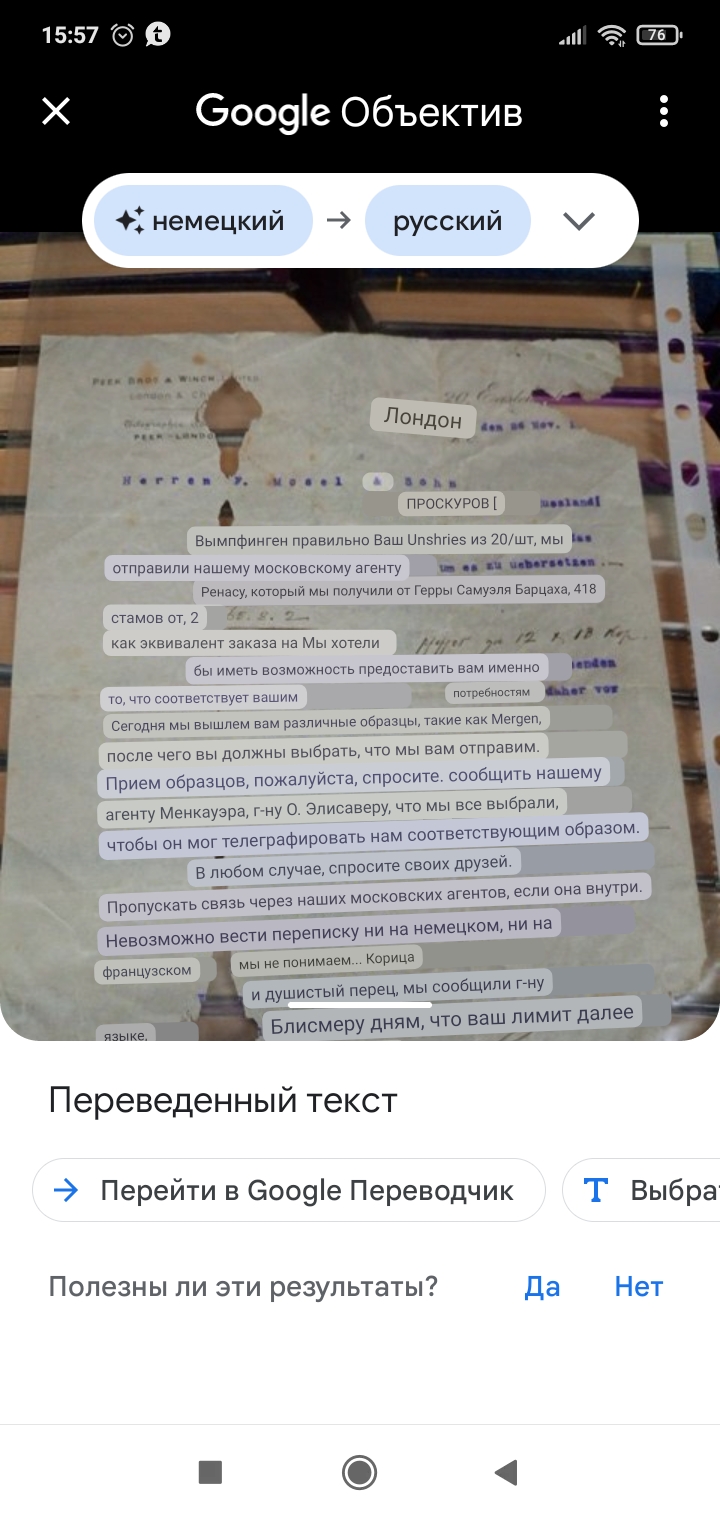 15:57
76
Google Объектив
немецкий → русский
PEEK BROS & WINCH, LIMITED
London &
PEEK-LONDON
20, Eastcheap
Лондон
den 26 Nov. 1
Herren F. Mosel & Sohn
ПРОСКУРОВ [
Russland[
Вымпфинген правильно Ваш Unshries из 20/шт, мы
das
отправили нашему московскому агенту
um es zu uebersetzen.
Ренасу, который мы получили от Герры Самуэля Барцаха, 418
стамов от, 2
как эквивалент заказа на Мы хотели
12 & 13 Kop.
бы иметь возможность предоставить вам именно
senden
то, что соответствует вашим
потребностям
daher vor
Сегодня мы вышлем вам различные образцы, такие как Mergen,
после чего вы должны выбрать, что мы вам отправим.
Прием образцов, пожалуйста, спросите. сообщить нашему
агенту Менкауэра, г-ну О. Элисаверу, что мы все выбрали,
чтобы он мог телеграфировать нам соответствующим образом.
В любом случае, спросите своих друзей.
Пропускать связь через наших московских агентов, если она внутри.
Невозможно вести переписку ни на немецком, ни на
французском
мы не понимаем... Корица
и душистый перец, мы сообщили г-ну
языке,
Блисмеру дням, что ваш лимит далее
Переведенный текст
Перейти в Google Переводчик
Выбрат
Полезны ли эти результаты?
Да
Нет